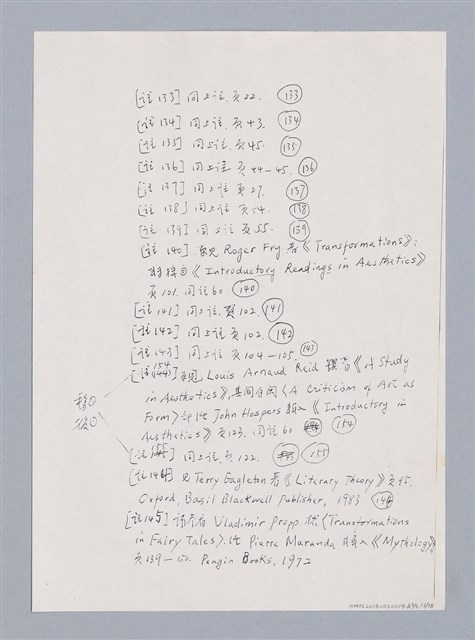 [註133] 同上註.頁22. 133
[註134] 同上註.頁43. 134
[註135] 同上註.頁45. 135
[註136] 同上註 頁44-45. 136
[註137] 同上註 頁27. 137
[註138] 同上註 頁54. 138
[註139] 同上註 頁55. 139
[註140] 見 Roger Fry 著《Transformations》:
轉譯自《Introductory Readings in Aesthetics》
頁101. 同註60 140
[註141] 同上註. 頁102. 141
[註142] 同上註 頁102. 142
[註143] 同上註 頁104-105. 143
[註154] 見 Louis Arnaud Reid 撰《A Study
in Aesthetics》,其間有關〈A Criticism of Art as
Form〉部份 John Hospers 輯入《Introductory in
Aesthetics》頁123. 同註60 154
移
後
[註155] 同上註.頁122. 155
[註144] 見 Terry Eagleton 著《Literary Theory》頁95.
Oxford, Basil Blackwell Publisher, 1983 144
[註145] 請參看 Vladimir Propp 撰〈Transformations
in Fairy Tales〉. Pierre Maranda 輯入《Mythology》
頁139-150. Pengin Books, 1972